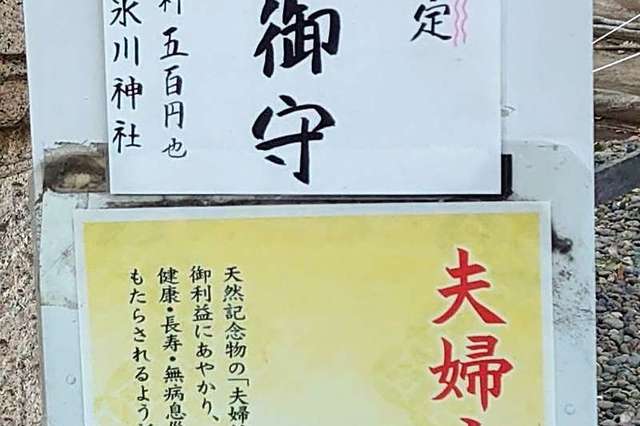 定
御守
料五百円也
氷川神社
夫婦
天然記念物の「夫婦
御利益にあやかり、
健康・長寿・無病息災
もたらされるよう